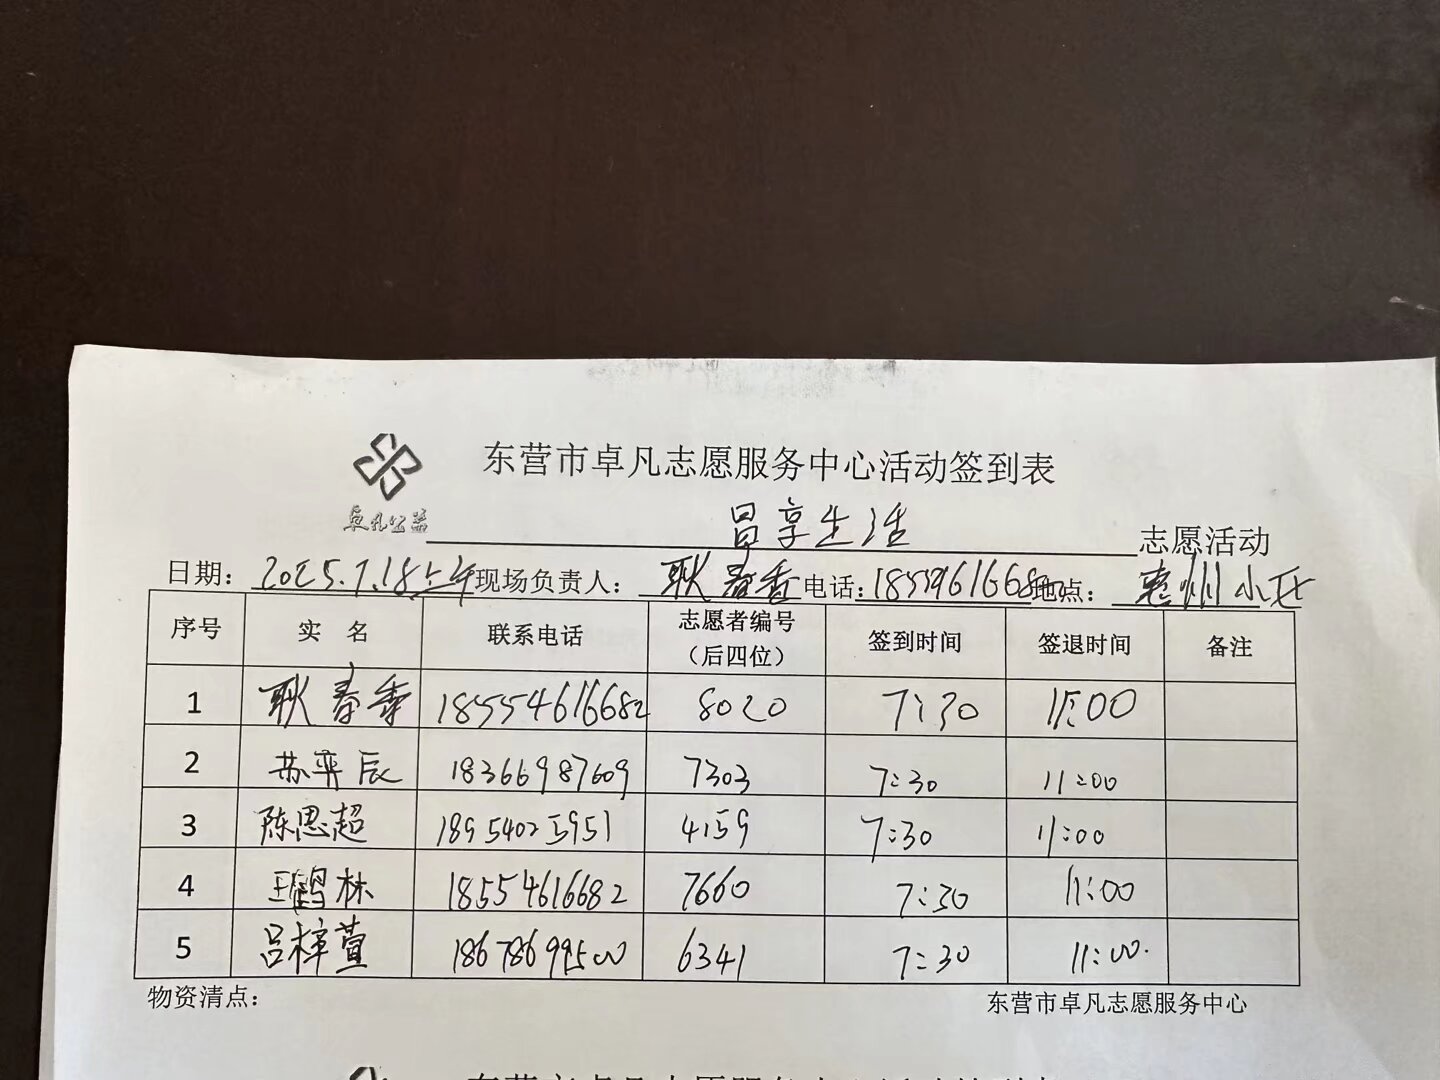 东营市卓凡志愿服务中心活动签到表
卓凡公益
冒享生活 志愿活动
日期：2025.7.18上午 现场负责人：耿春香 电话：18554616682 地点：惠州小区
序号 实 名 联系电话 志愿者编号（后四位） 签到时间 签退时间 备注
1 耿春香 18554616682 8020 7:30 11:00
2 苏弈辰 18366987609 7303 7:30 11:00
3 陈思超 18954025951 4159 7:30 11:00
4 王鹤林 18554616682 7660 7:30 11:00
5 吕梓萱 18678699500 6341 7:30 11:00.
物资清点： 东营市卓凡志愿服务中心